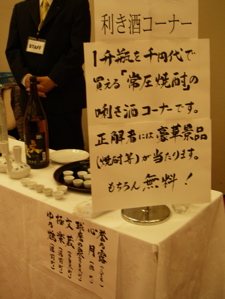 利き酒コーナー
1升瓶を千円代で
買える「常圧焼酎」の
唎き酒コーナーです。
正解者には豪華景品
(焼酎等)が当たります。
もちろん無料!
STAFF
心月
文蔵
極楽